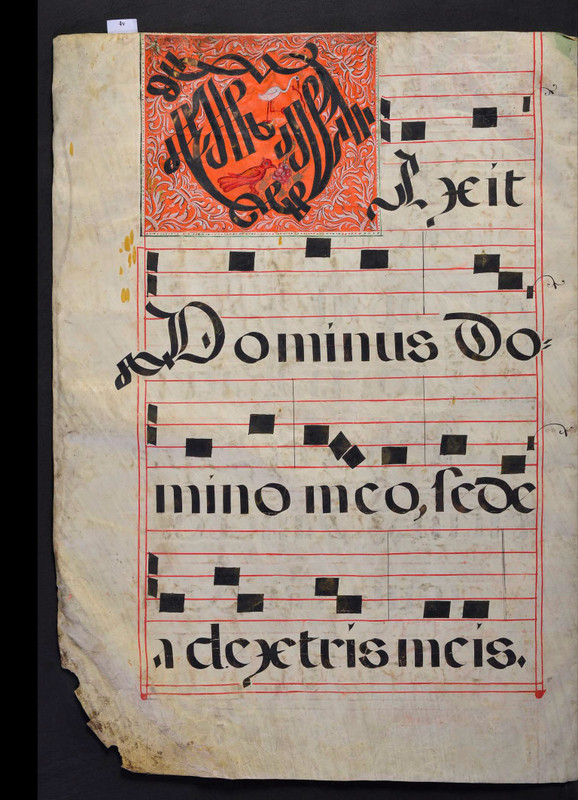 DIxit
Dominus Do=
mino meo, sede
a dextris meis.